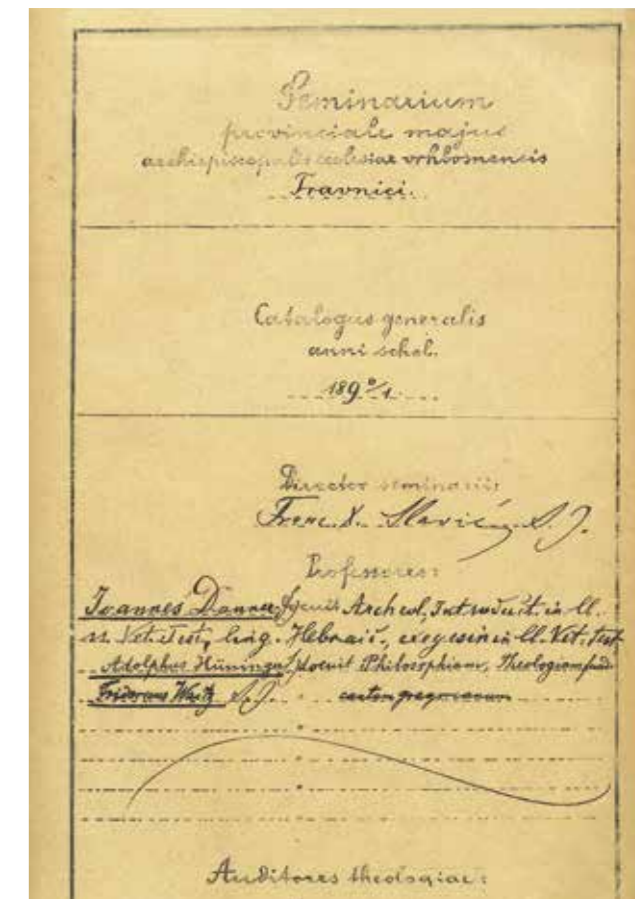 Seminarium
provinciale majus
archiepiscopalis ecclesiae vrhbosnensis
Travnici.
Catalogus generalis
anni schol.
189 0/1.
Director seminarii:
Franc. X. Slavić S. J.
Professores:
Joannes Danner S. J. docuit Archeol, Introduct. in ll.
ss. Vet. Test, ling. Hebraic., exegesin in ll. Vet. Test
Adolphus Hüninger docuit Philosophiam, Theologiam fund
S. J. cantum gregorianum
Auditores theologiae: